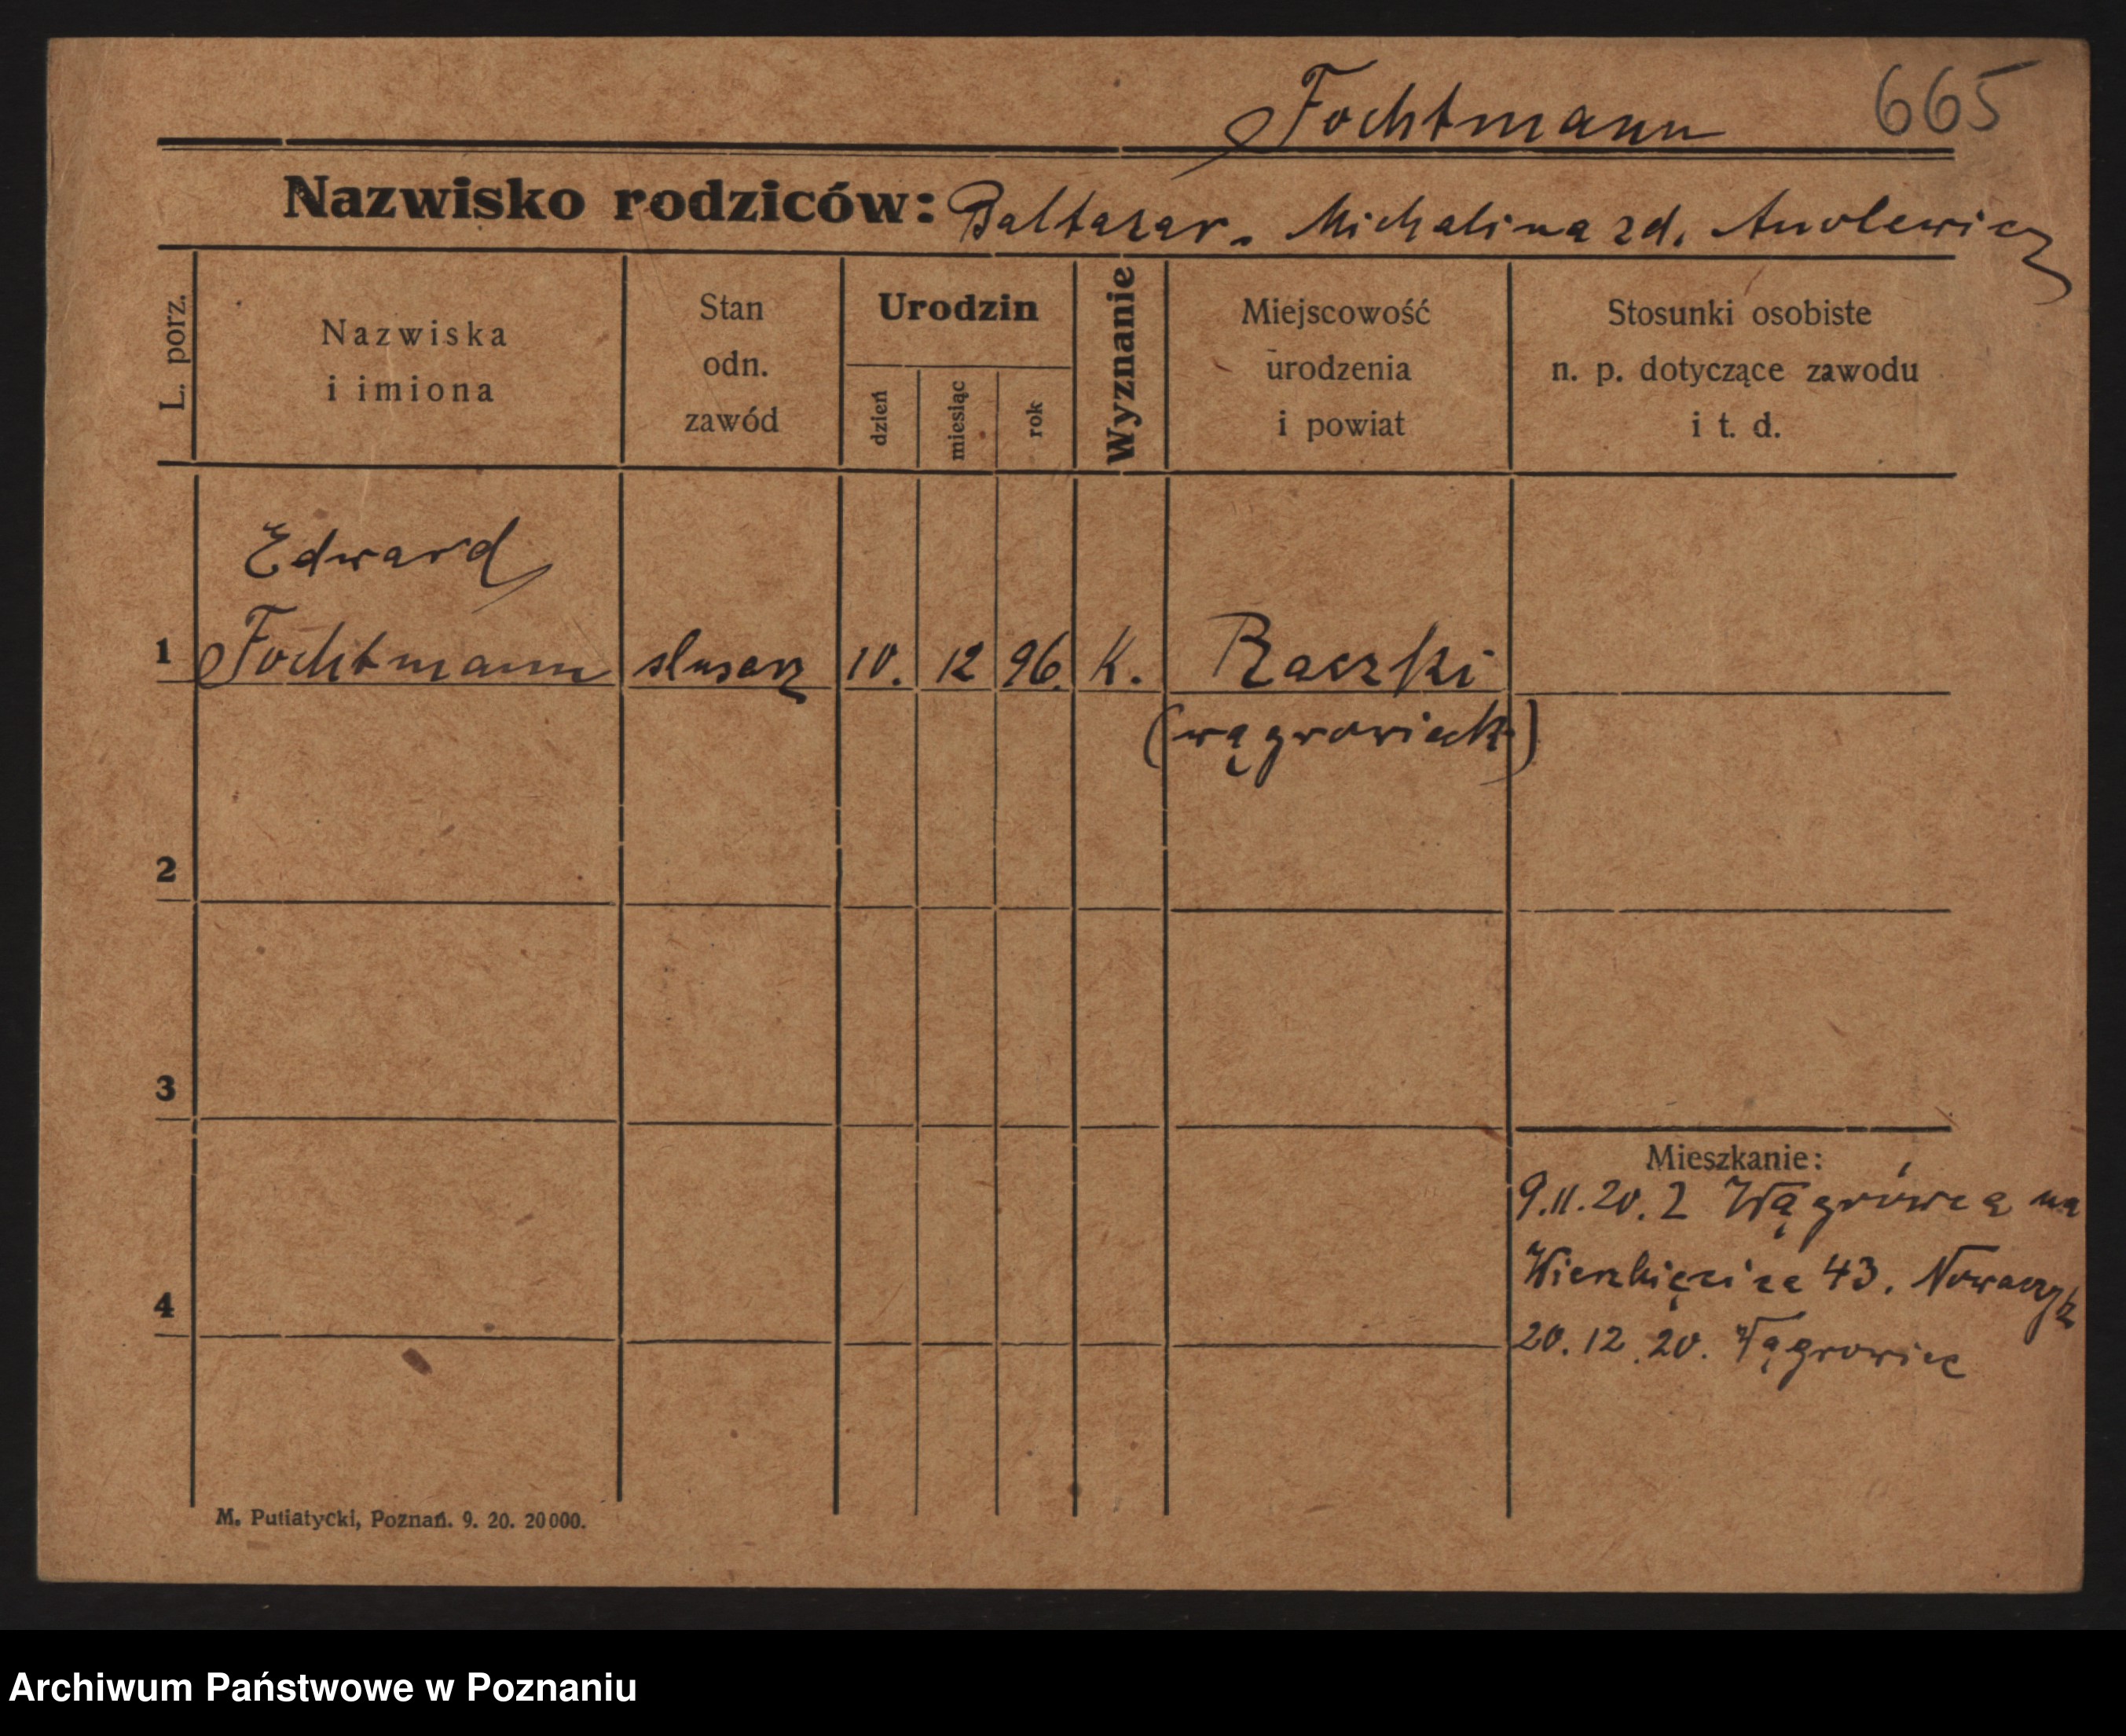 Fochtmann 665
Nazwisko rodziców: Baltazar. Michalina zd.
L. porz.
Nazwiska
i imiona
Stan
odn.
zawód
Urodzin
dzień
miesiąc
rok
Wyznanie
Miejscowość
urodzenia
i powiat
Stosunki osobiste
n. p. dotyczące zawodu
i t. d.
Edward
1 Fochtmann slusarz 10. 12 96. K. Raczki
(wągrowieck)
2
3
Mieszkanie:
9.11.20. z Wągrówca na
Wierzbięcice 43. Nowaczyk
4
20.12.20. Wągrowiec
M. Putiatycki, Poznań. 9. 20. 20000.
Archiwum Państwowe w Poznaniu